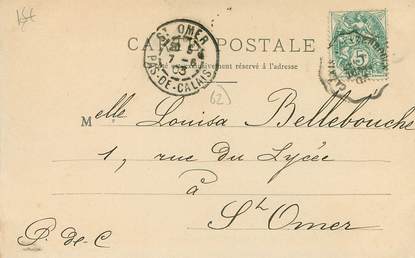 CARTE POSTALE
exclusivement réservé à l'adresse
ST OMER
7-6
03
PAS-DE-CALAIS
5
(62)
Melle Louisa Bellebouche
1, rue du Lycée
à
St Omer
P. de-C